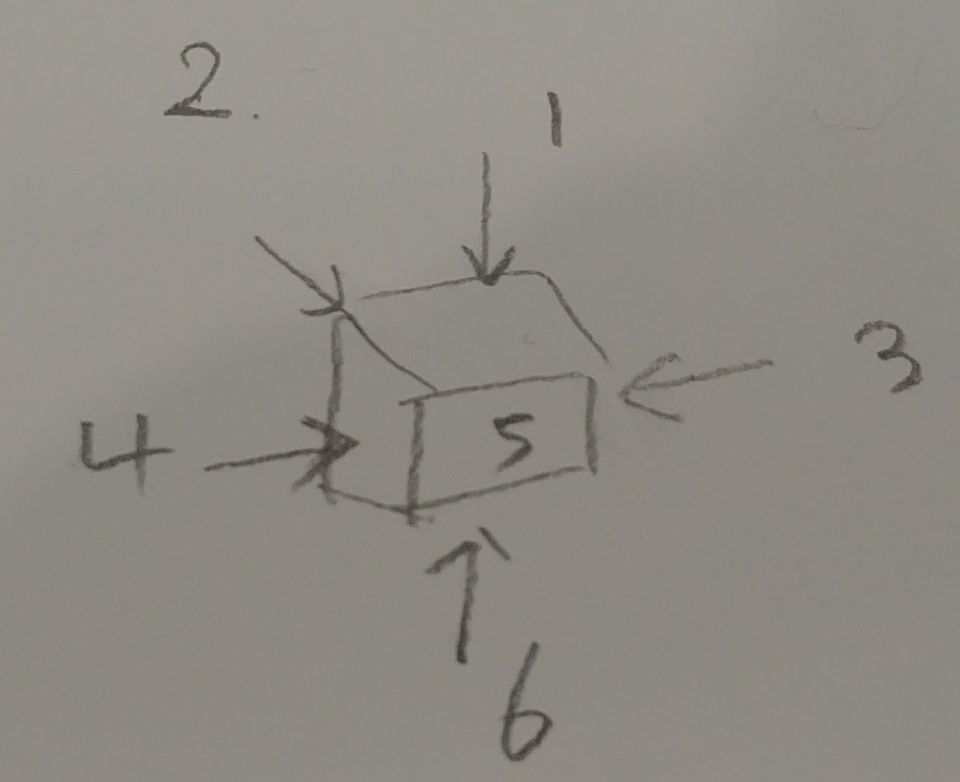 2.
1
3
4
5
6